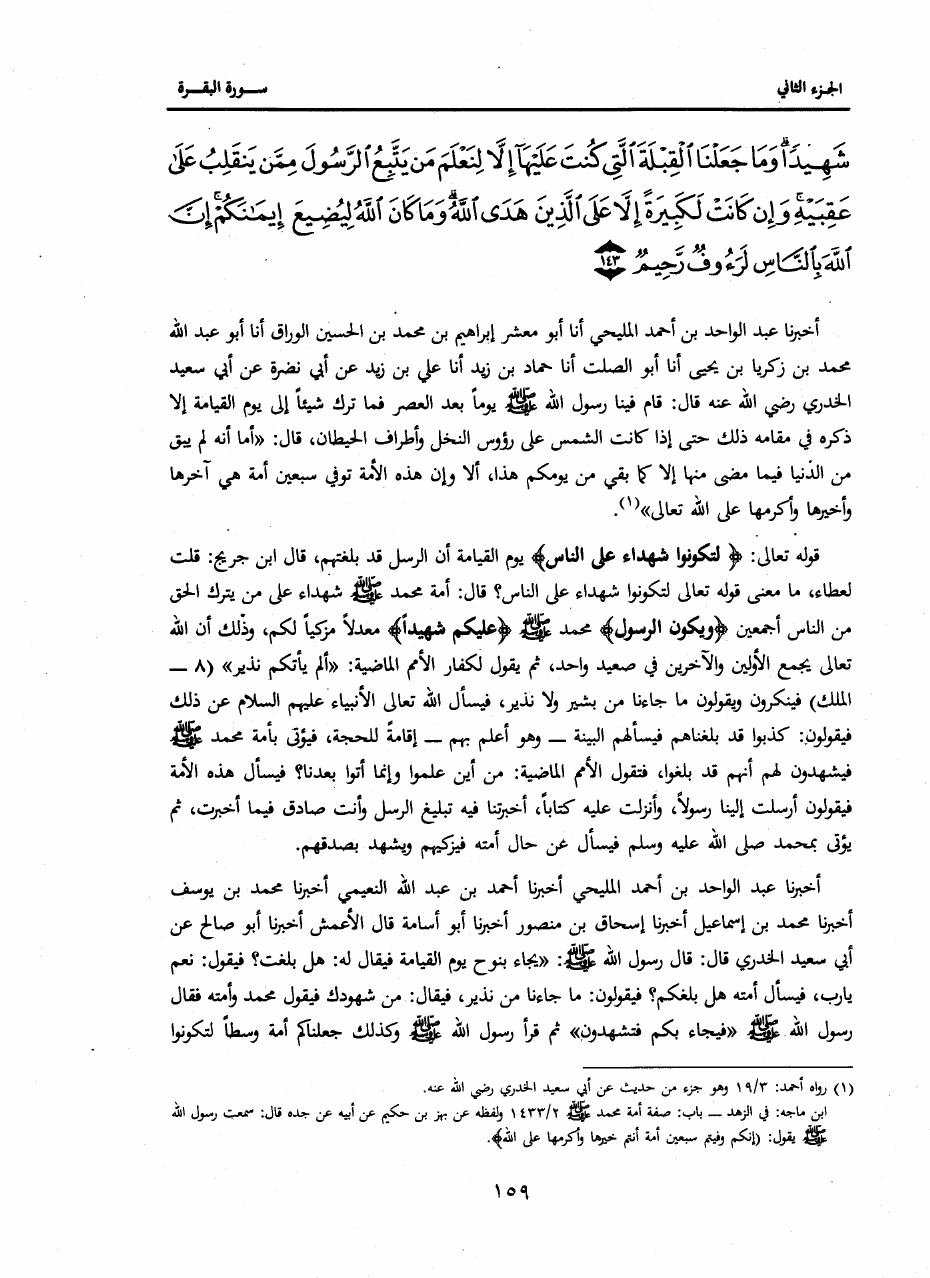 الجزء الثاني
سورة البقرة
شَهِيدًا ۗ وَمَا جَعَلْنَا ٱلْقِبْلَةَ ٱلَّتِى كُنتَ عَلَيْهَآ إِلَّا لِنَعْلَمَ مَن يَتَّبِعُ ٱلرَّسُولَ مِمَّن يَنقَلِبُ عَلَىٰ
عَقِبَيْهِ ۚ وَإِن كَانَتْ لَكَبِيرَةً إِلَّا عَلَى ٱلَّذِينَ هَدَى ٱللَّهُ ۗ وَمَا كَانَ ٱللَّهُ لِيُضِيعَ إِيمَـٰنَكُمْ ۚ إِنَّ
ٱللَّهَ بِٱلنَّاسِ لَرَءُوفٌ رَّحِيمٌ ١٤٣
أخبرنا عبد الواحد بن أحمد المليحي أنا أبو معشر إبراهيم بن محمد بن الحسين الوراق أنا أبو عبد الله
محمد بن زكريا بن يحيى أنا أبو الصلت أنا حماد بن زيد أنا علي بن زيد عن أبي نضرة عن أبي سعيد
الخدري رضي الله عنه قال: قام فينا رسول الله ﷺ يوماً بعد العصر فما ترك شيئاً إلى يوم القيامة إلا
ذكره في مقامه ذلك حتى إذا كانت الشمس على رؤوس النخل وأطراف الحيطان، قال: «أما أنه لم يبق
من الدنيا فيما مضى منها إلا كما بقي من يومكم هذا، ألا وإن هذه الأمة توفي سبعين أمة هي آخرها
وأخيرها وأكرمها على الله تعالى»(١).
قوله تعالى: ﴿ لتكونوا شهداء على الناس﴾ يوم القيامة أن الرسل قد بلغتهم، قال ابن جريج: قلت
لعطاء، ما معنى قوله تعالى لتكونوا شهداء على الناس؟ قال: أمة محمد ﷺ شهداء على من يترك الحق
من الناس أجمعين ﴿ويكون الرسول﴾ محمد ﷺ ﴿عليكم شهيداً﴾ معدلاً مزكياً لكم، وذلك أن الله
تعالى يجمع الأولين والآخرين في صعيد واحد، ثم يقول لكفار الأمم الماضية: «ألم يأتكم نذير» (٨ ــ
الملك) فينكرون ويقولون ما جاءنا من بشير ولا نذير، فيسأل الله تعالى الأنبياء عليهم السلام عن ذلك
فيقولون: كذبوا قد بلغناهم فيسألهم البينة ــ وهو أعلم بهم ــ إقامةً للحجة، فيؤتى بأمة محمد ﷺ
فيشهدون لهم أنهم قد بلغوا، فتقول الأمم الماضية: من أين علموا وإنما أتوا بعدنا؟ فيسأل هذه الأمة
فيقولون أرسلت إلينا رسولاً، وأنزلت عليه كتاباً، أخبرتنا فيه تبليغ الرسل وأنت صادق فيما أخبرت، ثم
يؤتى بمحمد صلى الله عليه وسلم فيسأل عن حال أمته فيزكيهم ويشهد بصدقهم.
أخبرنا عبد الواحد بن أحمد المليحي أخبرنا أحمد بن عبد الله النعيمي أخبرنا محمد بن يوسف
أخبرنا محمد بن إسماعيل أخبرنا إسحاق بن منصور أخبرنا أبو أسامة قال الأعمش أخبرنا أبو صالح عن
أبي سعيد الخدري قال: قال رسول الله ﷺ: «يجاء بنوح يوم القيامة فيقال له: هل بلغت؟ فيقول: نعم
يارب، فيسأل أمته هل بلغكم؟ فيقولون: ما جاءنا من نذير، فيقال: من شهودك فيقول محمد وأمته فقال
رسول الله ﷺ «فيجاء بكم فتشهدون» ثم قرأ رسول الله ﷺ وكذلك جعلناكم أمة وسطاً لتكونوا
(١) رواه أحمد: ١٩/٣ وهو جزء من حديث عن أبي سعيد الخدري رضي الله عنه.
ابن ماجه: في الزهد ــ باب: صفة أمة محمد ﷺ ١٤٣٣/٢ ولفظه عن بهز بن حكيم عن أبيه عن جده قال: سمعت رسول الله
ﷺ يقول: (إنكم وفيتم سبعين أمة أنتم خيرها وأكرمها على الله﴾.
١٥٩